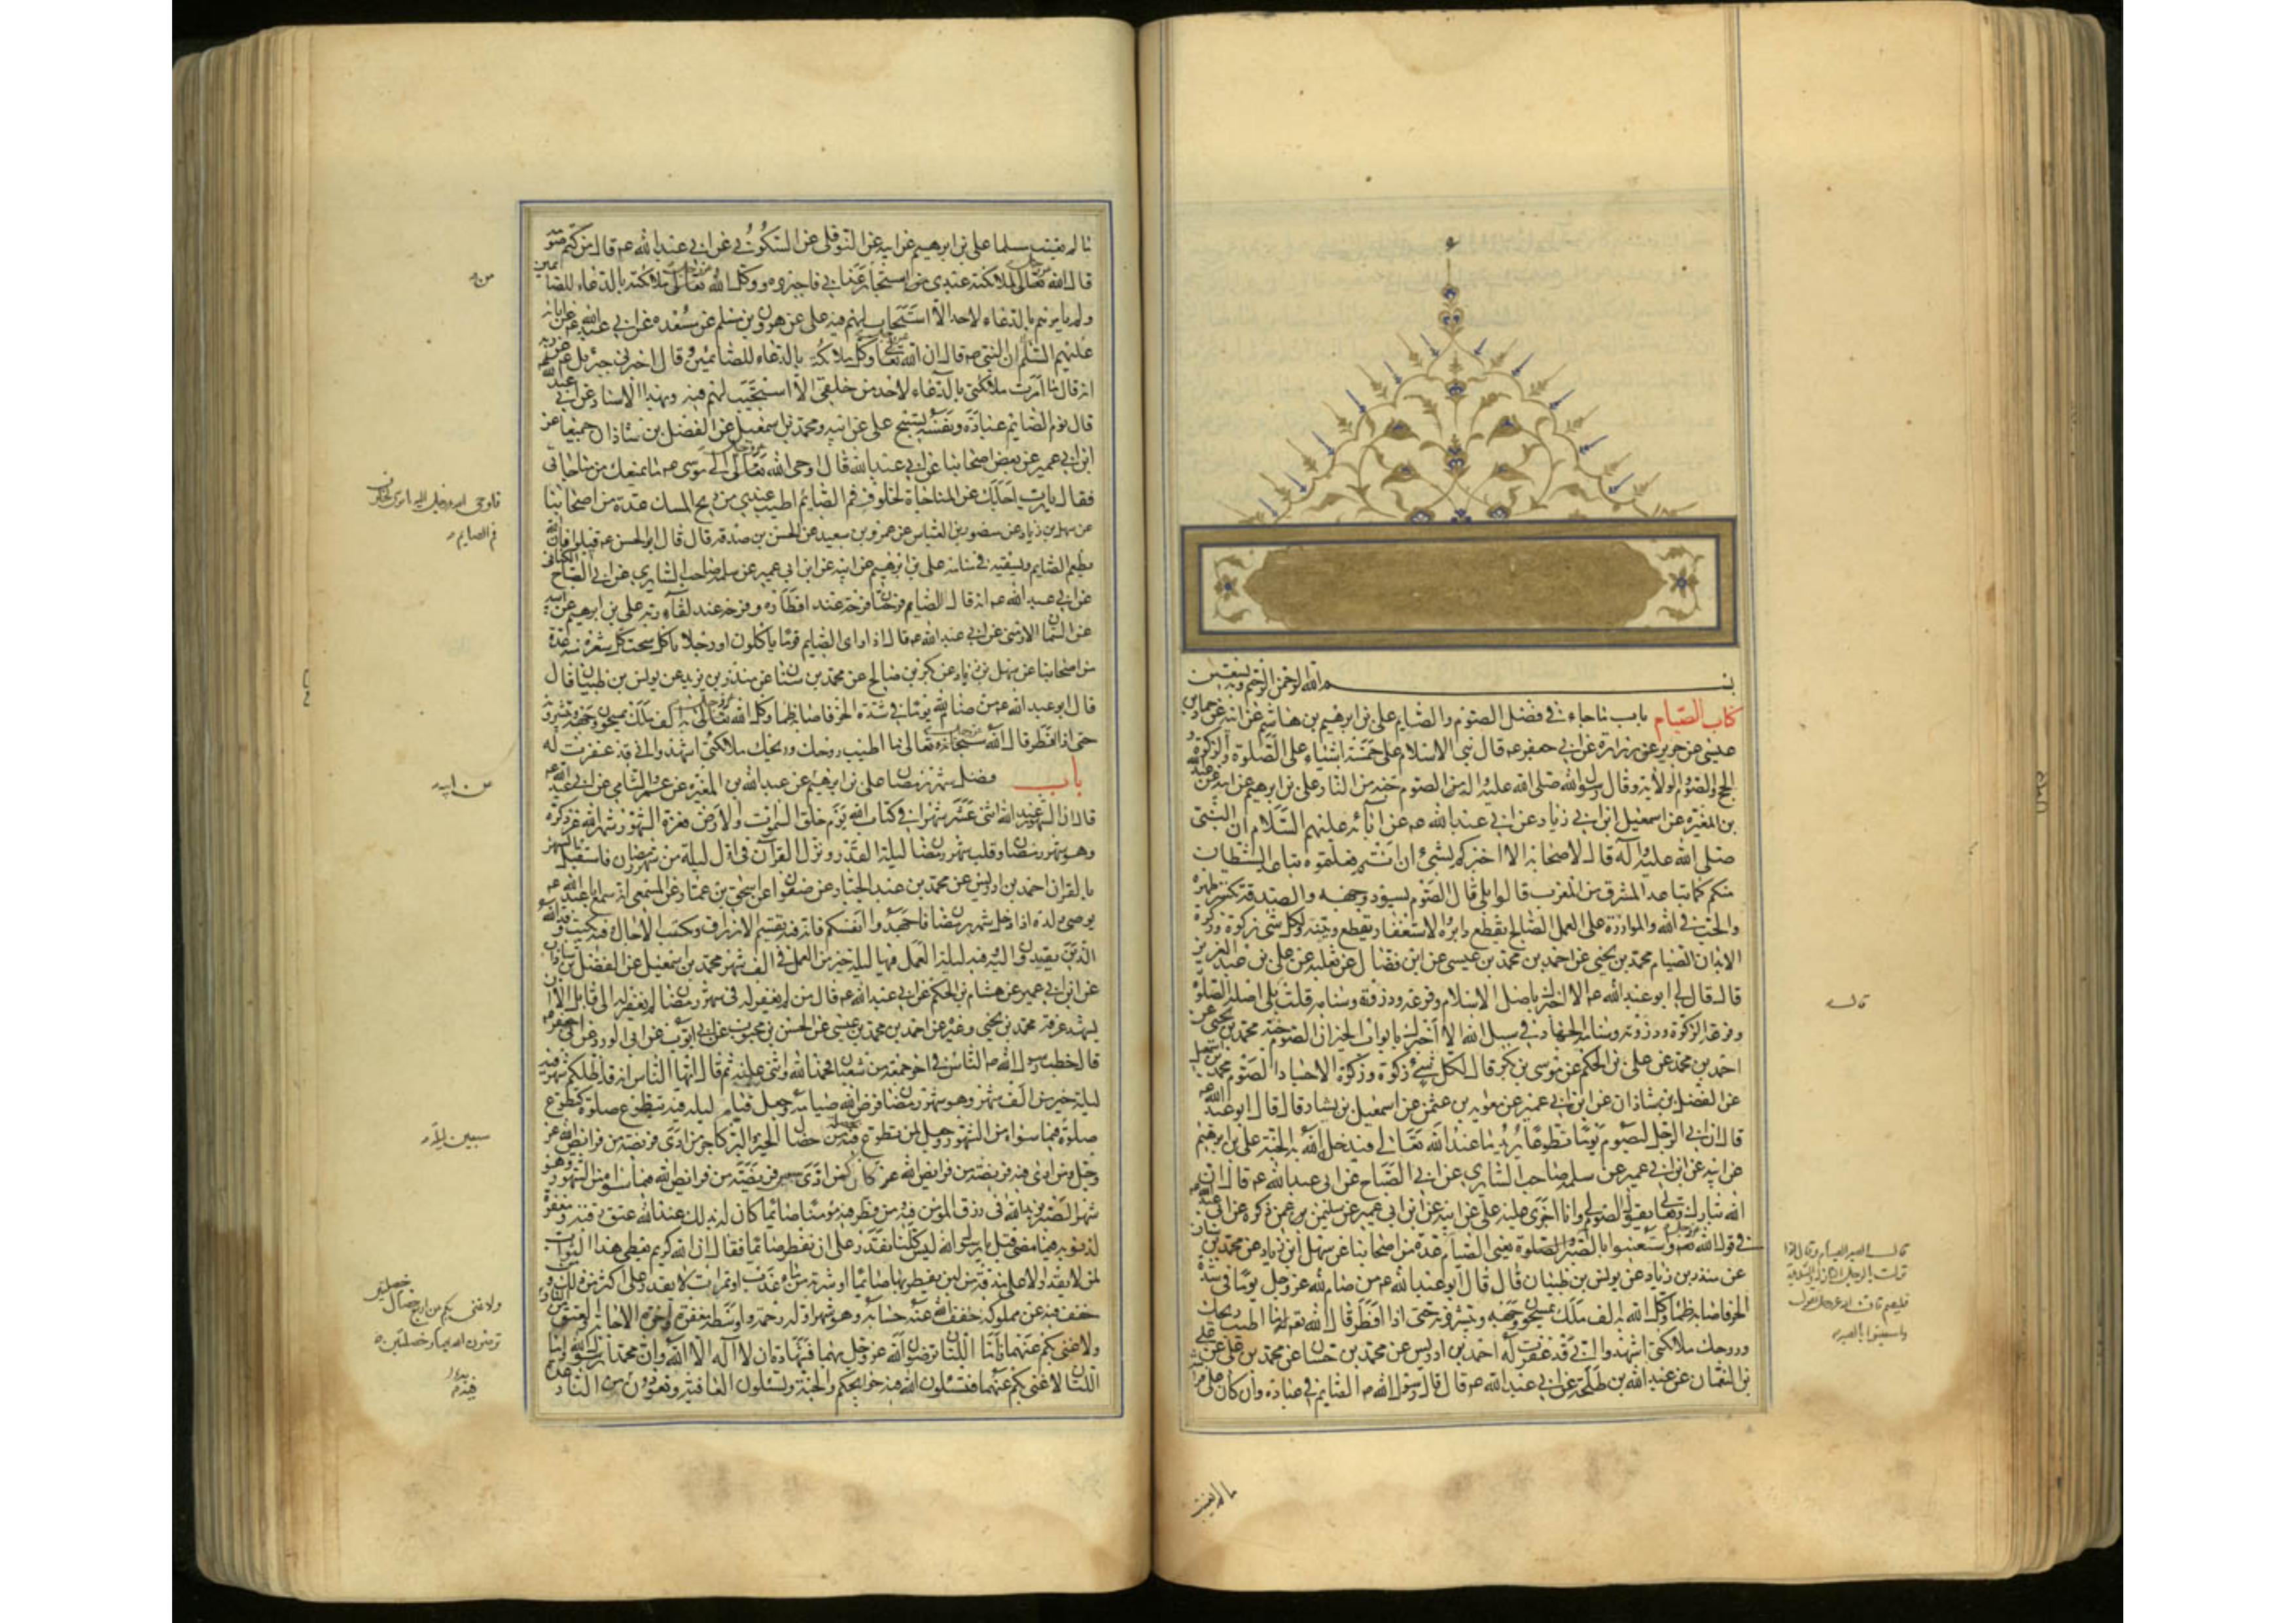 بسم الله الرحمن الرحيم وبه نستعين
كتاب الصيام باب ما جاء في فضل الصوم والصايم علي بن ابرهيم بن هاشم عن ابيه عن حماد بن
عيسى عن حريز عن زرارة عن ابي جعفر عه قال بني الاسلام على خمسة اشياء على الصلوة والزكوة و
الحج والصوم والولاية وقال رسول الله صلى الله عليه واله الصوم جنة من النار علي بن ابرهيم عن ابيه عن عبد الله
بن المغيرة عن اسمعيل ابن ابي زياد عن ابي عبد الله عه عن ابائه عليهم السلام ان النبي
صلى الله عليه وآله قال لاصحابه الا اخبركم بشئ ان انتم فعلتموه تباعد الشيطان
منكم كما تباعد المشرق من المغرب قالوا بلى قال الصوم يسود وجهه والصدقة تكسر ظهره
والحب في الله والموازرة على العمل الصالح يقطع دابره والاستغفار يقطع وتينه ولكل شئ زكوة وزكوة
الابدان الصيام محمد بن يحيى عن احمد بن محمد بن عيسى عن ابن فضال عن ثعلبة عن علي بن عبد العزيز
قال قال لي ابو عبد الله عه الا اخبرك باصل الاسلام وفرعه وذروته وسنامه قلت بلى قال اصله الصلوة
وفرعه الزكوة وذروته وسنامه الجهاد في سبيل الله الا اخبرك بابواب الخير ان الصوم جنة محمد بن يحيى عن
احمد بن محمد عن علي بن الحكم عن موسى بن بكر قال لكل شئ زكوة وزكوة الاجساد الصوم محمد بن اسمعيل
عن الفضل بن شاذان عن ابن ابي عمير عن معوية بن عثمن عن اسمعيل بن يشار قال قال ابو عبد الله عه
قال ان الرجل ليصوم يوما تطوعا يريد ما عند الله تعالى فيدخله الله به الجنة علي بن ابرهيم
عن ابيه عن ابن ابي عمير عن سلمة صاحب السابري عن ابي الصباح عن ابي عبد الله عه قال ان
الله تبارك وتعالى يقول الصوم لي وانا اجزي عليه علي عن ابيه عن ابن ابي عمير عن سليمن عمن ذكره عن ابي عبد الله عه
في قول الله عز وجل واستعينوا بالصبر والصلوة يعني الصيام عدة من اصحابنا عن سهل ابن زياد عن محمد بن سنان
عن منذر بن زياد عن يونس بن ظبيان قال قال ابو عبد الله عه من صام لله عز وجل يوما في شدة
الحر فاصابه ظما وكل الله به الف ملك يمسحون وجهه ويبشرونه حتى اذا افطر قال الله تعه له ما اطيب ريحك
وروحك ملائكتي اشهدوا اني قد غفرت له احمد بن ادريس عن محمد بن حسان عن محمد بن علي عن علي
بن النعمان عن عبد الله بن طلحة عن ابي عبد الله عه قال قال رسول الله صه الصايم في عبادة وان كان على فراشه
ما لم يغتب
قال
ما لم يغتب مسلما علي بن ابرهيم عن ابيه عن النوفلي عن السكوني عن ابي عبد الله عه قال من كتم صومه
قال الله تعالى لملائكته عبدي من استجار عذابي فاجيروه ووكل الله تعالى ملائكته بالدعاء للصائمين
ولم يامرهم بالدعاء لاحد الا استجاب لهم فيه علي عن هرون بن مسلم عن مسعدة عن ابي عبد الله عن ابائه
عليهم السلم ان النبي صه قال ان الله تعالى وكل ملائكة بالدعاء للصائمين وقال اخبرني جبرئيل عن ربه
انه قال ما امرت ملائكتي بالدعاء لاحد من خلقي الا استجيب لهم فيه وبهذا الاسناد عن ابي عبد الله
قال نوم الصايم عبادة ونفسه تسبيح علي عن ابيه ومحمد بن اسمعيل عن الفضل بن شاذان جميعا عن
ابن ابي عمير عن بعض اصحابنا عن ابي عبد الله قال اوحى الله تعالى الى موسى عه ما يمنعك من مناجاتي
فقال يا رب اجلك عن المناجاة لخلوف فم الصايم اطيب عندي من ريح المسك عدة من اصحابنا
عن سهل بن زياد عن منصور بن العباس عن عمرو بن سعيد عن الحسن بن صدقة قال قال ابو الحسن عه قيلوا فان الله
يطعم الصايم ويسقيه في منامه علي بن ابرهيم عن ابيه عن ابن ابي عمير عن سلمة صاحب السابري عن ابي الصباح الكناني
عن ابي عبد الله عه انه قال للصايم فرحتان فرحة عند افطاره وفرحة عند لقاء ربه علي بن ابرهيم عن ابيه
عن السمان الارمني عن ابي عبد الله عه قال اذا راى الصايم قوما ياكلون او رجلا ياكل سبحت كل شعرة منه عدة
من اصحابنا عن سهل بن زياد عن بكر بن صالح عن محمد بن سنان عن منذر بن يزيد عن يونس بن ظبيان قال
قال ابو عبد الله عه من صام لله يوما في شدة الحر فاصابه ظما وكل الله تعالى به الف ملك يمسحون وجهه ويبشرونه
حتى اذا افطر قال الله سبحانه وتعالى ما اطيب روحك وريحك ملائكتي اشهدوا اني قد غفرت له
باب فضل شهر رمضان علي بن ابرهيم عن عبد الله بن المغيرة عن عمرو الشامي عن ابي عبد الله عه
قال ان الشهور عند الله اثنى عشر شهرا في كتاب الله يوم خلق السموت والارض فغرة الشهور شهر الله عز ذكره
وهو شهر رمضان وقلب شهر رمضان ليلة القدر ونزل القرآن في اول ليلة من شهر رمضان فاستقبل الشهر
بالقران احمد بن ادريس عن محمد بن عبد الجبار عن صفوان عن اسحق بن عمار عن المسمعي انه سمع ابا عبد الله عه
يوصي ولده اذا دخل شهر رمضان فاجهدوا انفسكم فان فيه تقسم الارزاق وتكتب الآجال وفيه يكتب وفد الله
الذين يفدون اليه وفيه ليلة العمل فيها خير من العمل في الف شهر محمد بن اسمعيل عن الفضل بن شاذان
عن ابن ابي عمير عن هشام بن الحكم عن ابي عبد الله عه قال من لم يغفر له في شهر رمضان لم يغفر له الى قابل الا ان
يشهد عرفة محمد بن يحيى وغيره عن احمد بن محمد بن عيسى عن الحسن بن محبوب عن ابي ايوب عن ابي الورد عن ابي جعفر عه
قال خطب رسول الله صه الناس في اخر جمعة من شعبان فحمد الله واثنى عليه ثم قال ايها الناس انه قد اظلكم شهر فيه
ليلة خير من الف شهر وهو شهر رمضان فرض الله صيامه وجعل قيام ليلة فيه بتطوع صلوة كتطوع
صلوة فيما سواه من الشهور وجعل لمن تطوع فيه من خصال الخير والبر كاجر من ادى فريضة من فرايض الله عز
وجل ومن ادى فيه فريضة من فرايض الله عز كان كمن ادى سبعين فريضة من فرايض الله فيما سواه من الشهور وهو
لمن لا يقدر الا على مذقة من لبن يفطر بها صائما او شربة من ماء عذب او تمرات لا يقدر على اكثر من ذلك و
خفف فيه عن مملوكه خفف الله عنه حسابه وهو شهر اوله رحمة واوسطه مغفرة واخره الاجابة والعتق من النار
ولا غنى بكم عنهما فاما اللتان ترضون الله عز وجل بهما فشهادة ان لا اله الا الله وان محمدا رسول الله واما
اللتان لا غنى بكم عنهما فتسئلون الله فيه حوائجكم والجنة وتسئلون العافية وتعوذون من النار
فم الصايم
عن ابيه
سبعين